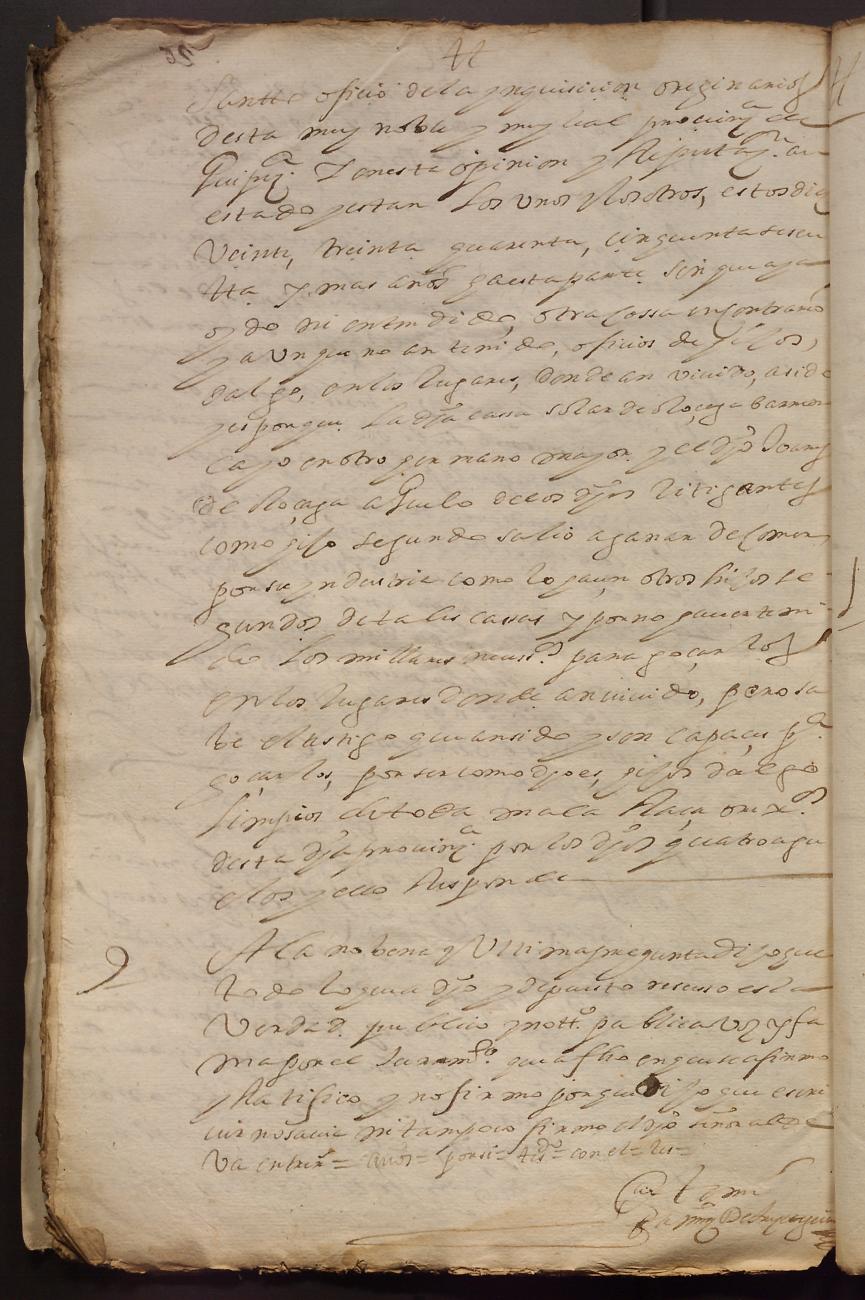 Santto oficio de la ynquisicion originarios
desta muy noble y muy leal provinça de
Guipuzª. Y en esta opinion y Reputaçn. an
estado y estan los unos y los otros, estos diez
Veinte, treinta quarenta, cinquenta sesen
tta y mas años haesta parte sin que aya
oydo ni entendido, otra cossa en contrario
y aunque no an tenido, oficios de hijos,
dalgo, en los lugares, donde an vivido, a sido
y es porque. La dha cassa solar de
cayo en otro hermano mayor y el dho Joanes
de aguelo de los dhos litigantes
como hijo segundo salio a ganar de comer
por su yndustria como lo haçen otros hijos se
gundos de tales cassas y por no haver teni
do los millares neçesºs. para goçar los
en los lugares donde an vivido, pero sa
be el testigo que an sido y son capaçes pª.
goçar los, por ser como dho es, hijos dalgo
limpios de toda mala Raça orixºs
desta dha provinçª por los dhos quatro agu
elos y ello Responde
9 A la nobena y Ultima pregunta dijo que
todo lo que a dho y depuesto de susso es la
Verdad. publico y nottº. publica voz y fa
ma por el Juramtº. que a fho en que se afirmo
y Ratifico y no firmo porque dijo que escri
vir no savia ni tampoco firmo el dho señor alcde
Va entrers = años = por si = = con el = les =